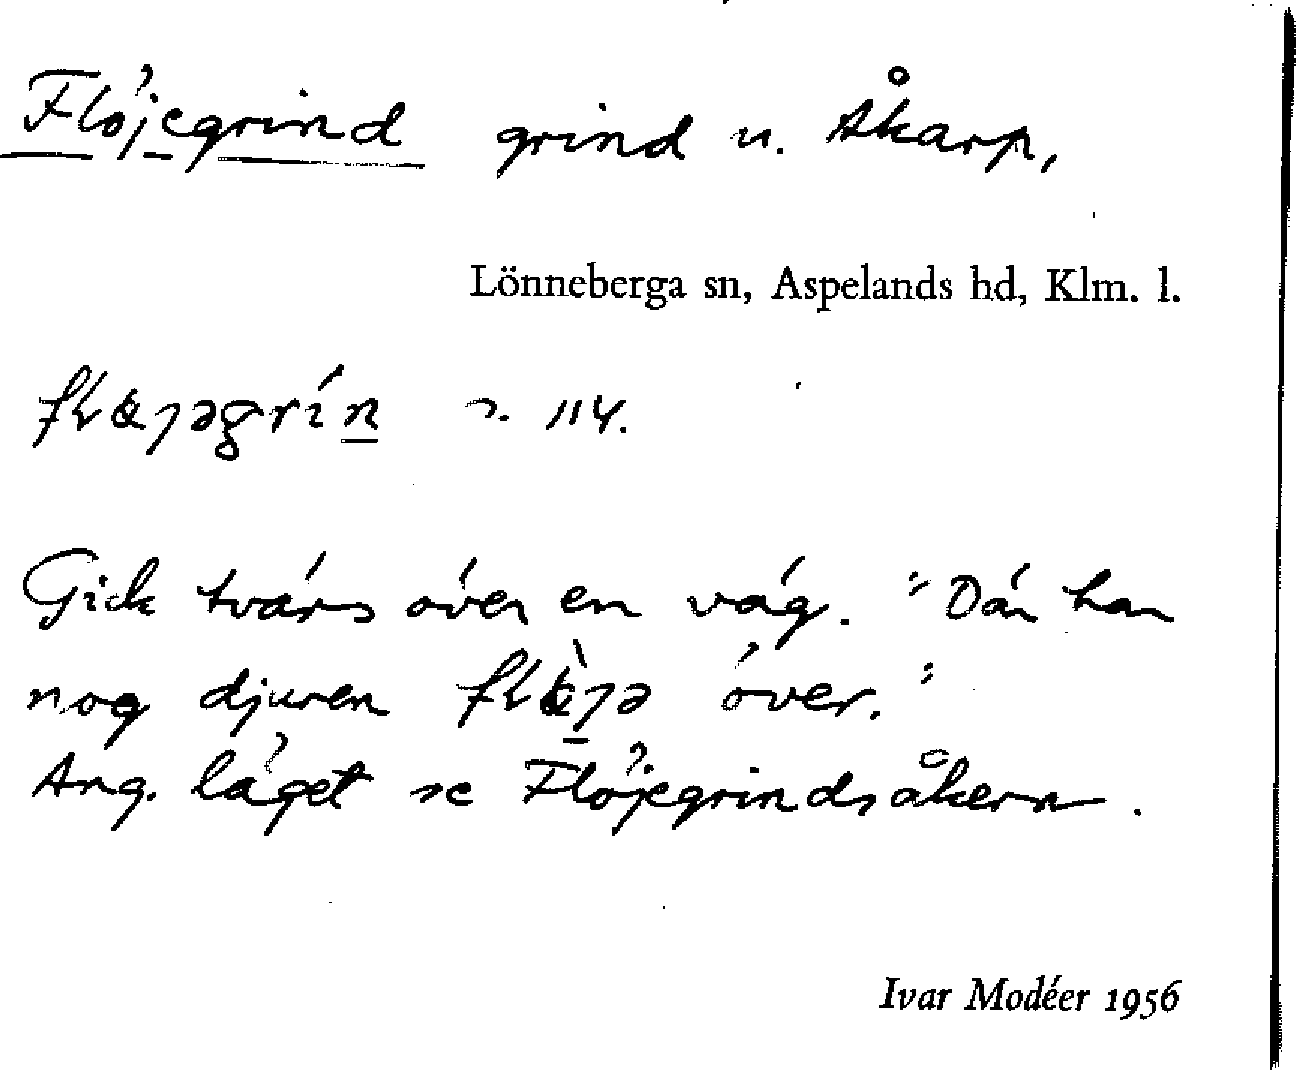 Flöjegrind grind u. Åkarp,
Lönneberga sn, Aspelands hd, Klm. l.
114.
Gick tvärs över en väg. "Där han
nog djuren över."
Ang. läget se Flöjegrindsåkern.
Ivar Modéer 1956